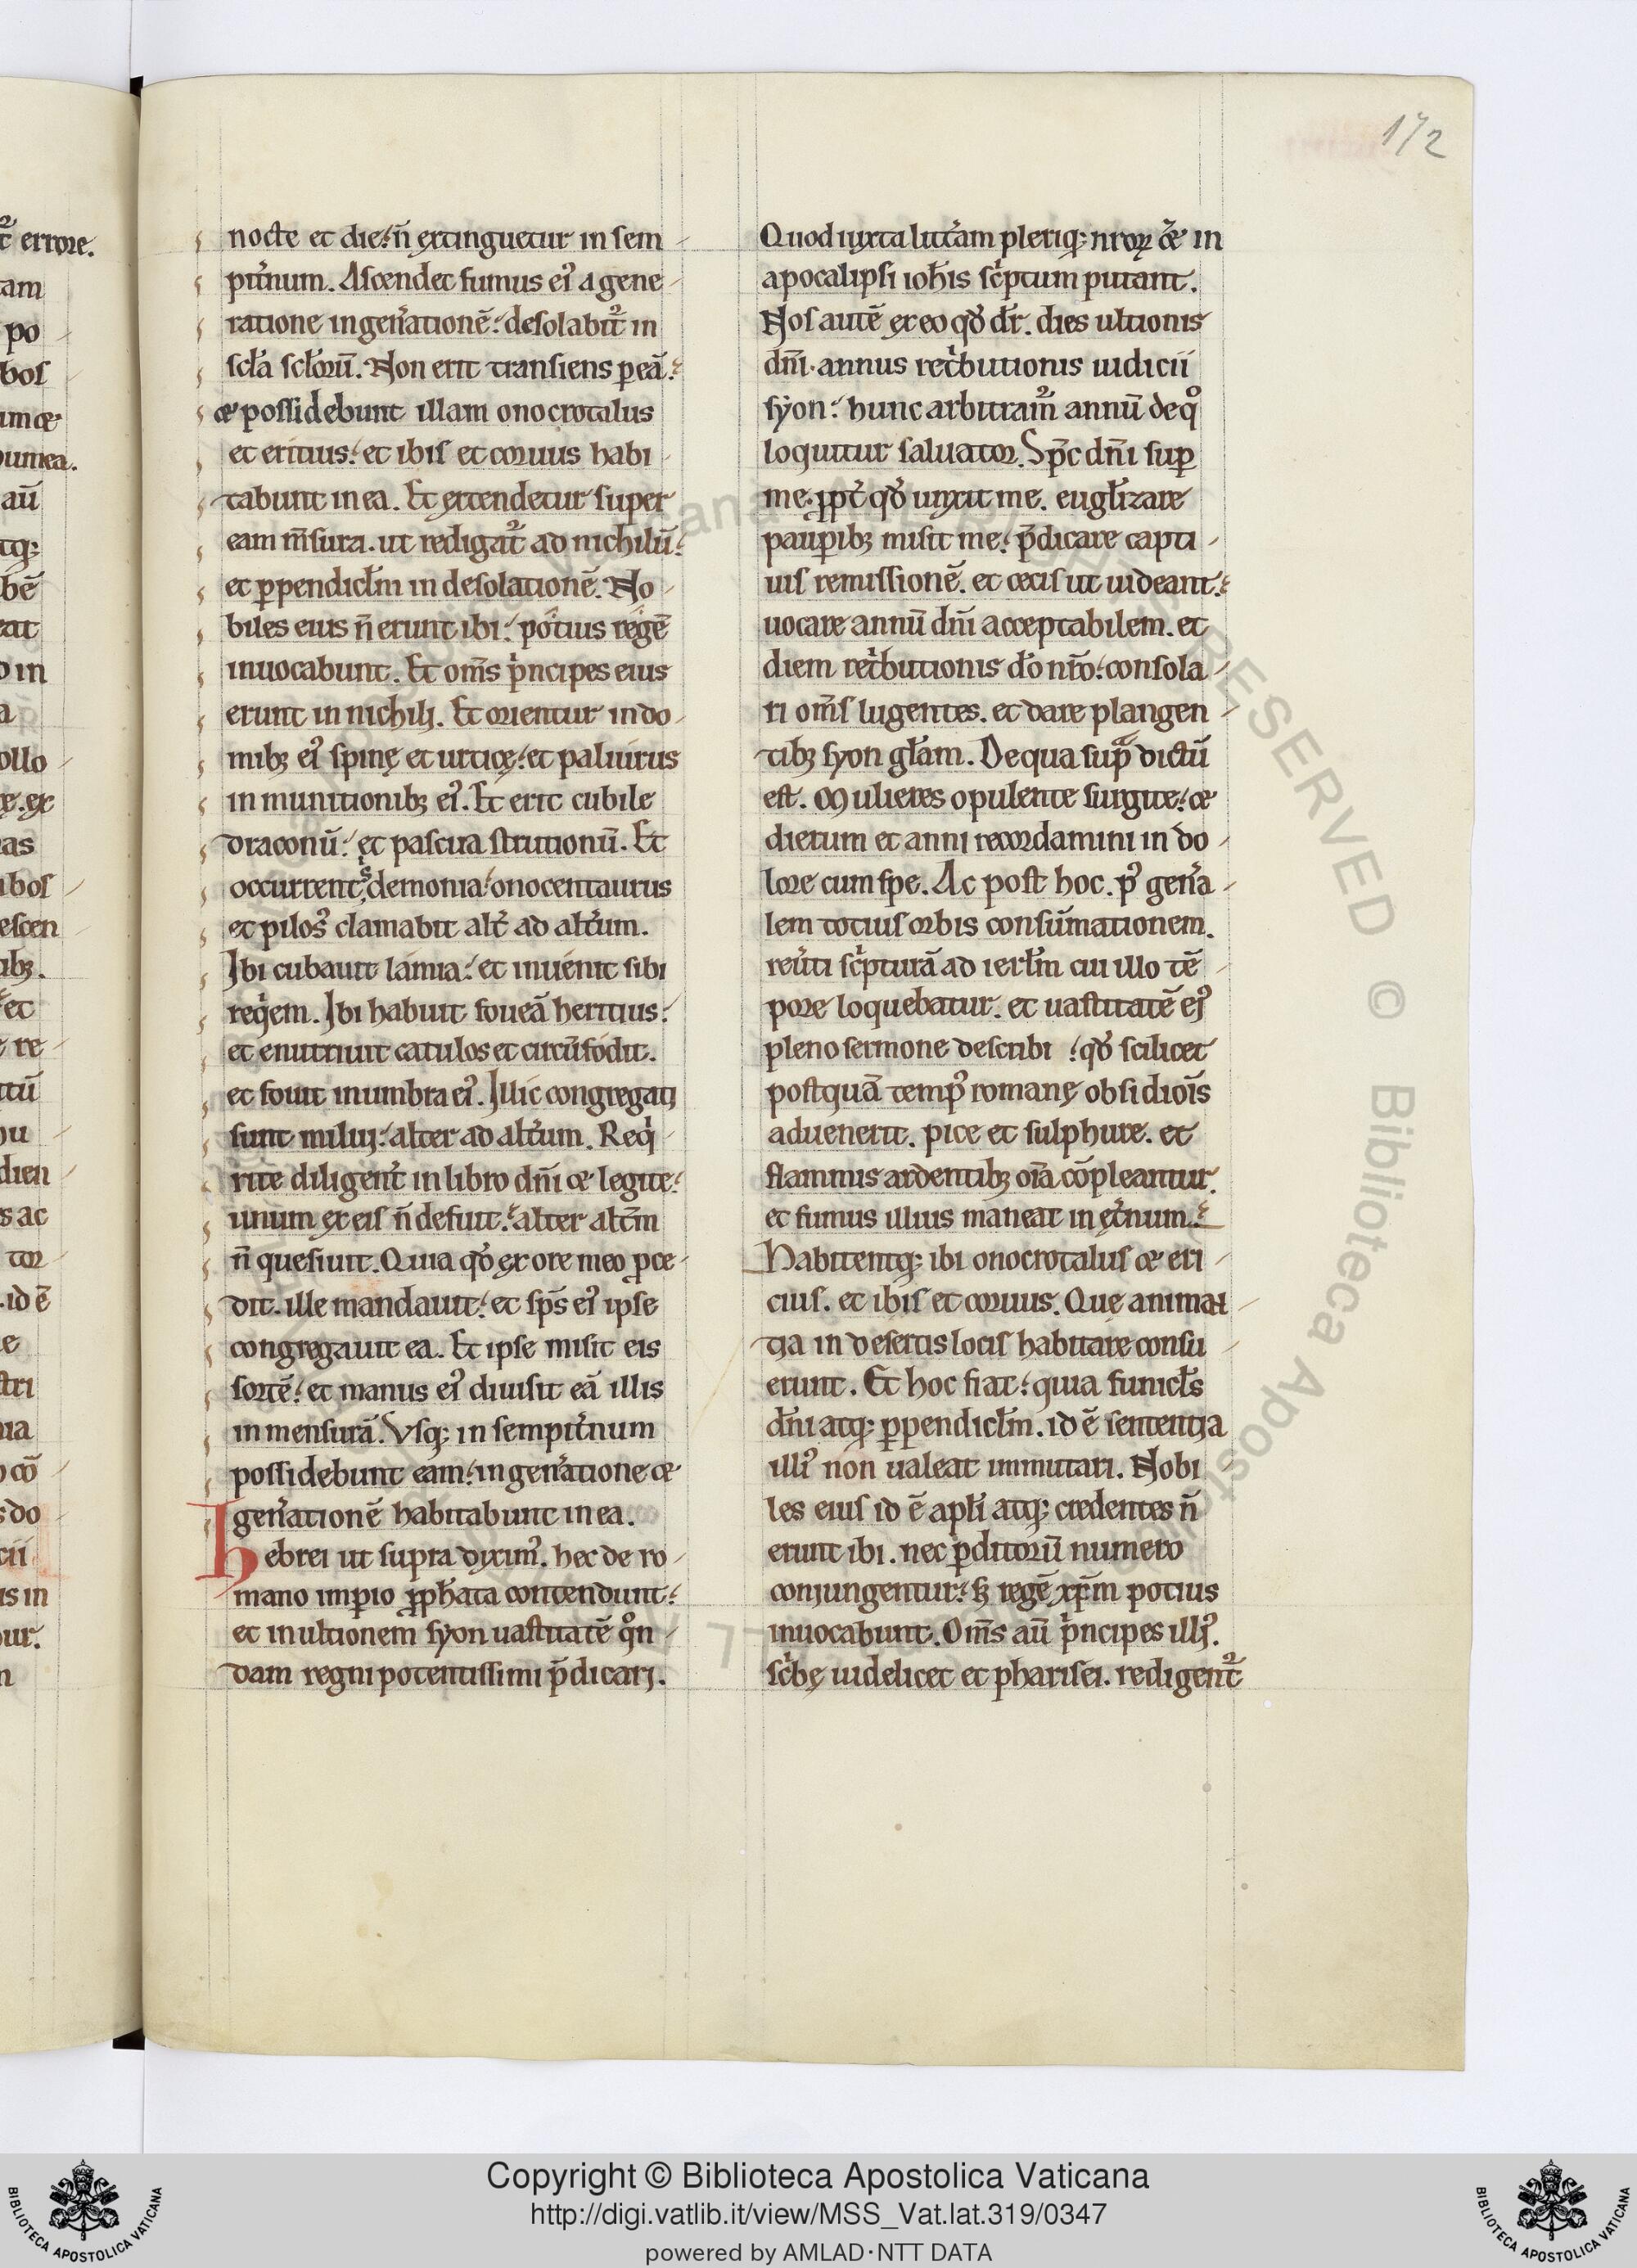 172
nocte et die. n̄ extinguetur in sem
pit̉num. Ascendet fumus eiꝰ a gene
ratione in gen̉ationē. desolabit᷑ in
scl̄a scl̄orū. Non erit transiens p eā.
& possidebunt illam onocrotalus
et ericius. et ibis et coruus habi
tabunt in ea. Et extendetur super
eam m̄sura. ut redigat᷑ ad nichilū.
et ꝑpendicl̄m in desolationē. No
biles eius n̄ erunt ibi. potius regē
inuocabunt. Et om̄s pͥncipes eius
erunt in nichilj. Et orientur in do
mibꝫ eiꝰ spinę et urticę. et paliuirus
in munitionibꝫ eiꝰ. Et erit cubile
draconū. et pascua strutionū. Et
occurrent demonia. onocentaurus
et pilosꝰ clamabit alt̉ ad alt̉um.
Ibi cubauit lamia. et inuenit sibi
reqͥem. Ibi habuit foueā hericius.
et enutriuit catulos et circūfodit.
et fouit in umbra eiꝰ. Illic congregati
sunt miluij. alter ad alt̉um. Reqͥ
rite diligent̉ in libro dn̄i & legite.
unum ex eis n̄ defuit. alter alt̄m
n̄ quesiuit. Quia qd̉ ex ore meo ꝓce
dit. ille mandauit. et sp̄s eiꝰ ipse
congregauit ea. Et ipse misit eis
sortē. et manus eiꝰ diuisit eā illis
in mensurā. Vsqꝫ in sempit̉num
possidebunt eam. in gen̉atione &
gen̉ationē habitabunt in ea.
Hebrei ut supra diximꝰ. hec de ro
mano imꝑio ꝓph̄ata contendunt.
et in ultionem syon uastitatē qͦn
dam regni potentissimi p̄dicarj.
Quod iuxta litt̉am pleriqꝫ nr̄oꝝ & in
apocalipsi ioh̄is scͥptum putant.
Nos autē ex eo qd̉ dr̄. dies ultionis
dn̄i. annus retͥbutionis iudicii
syon. hunc arbitram᷑ annū de qͦ
loquitur saluator. Sp̄c dn̄i suꝑ
me. ꝓpt̉ qd̉ unxit me. eugl̄izare
pauꝑibꝫ misit me. p̄dicare capti
uis remissionē. et cecis ut uideant.
uocare annū dn̄i acceptabilem. et
diem retͥbutionis dō nr̄o. consola
ri om̄s lugentes. et dare plangen
tibꝫ syon gl̄am. De qua supᷓ dictū
est. Mulieres opulente surgite. &
dierum et anni recordamini in do
lore cum spe. Ac post hoc. pꝰ gen̉a
lem totius orbis consūmationem.
reủti scͥpturā ad ierl̄m cui illo tē
pore loquebatur. et uastitatē ejꝰ
pleno sermone describi. qd̉ scilicet
postquā tempꝰ romanę obsidiōis
aduenerit. pice et sulphure. et
flammis ardentibꝫ oīa cōpleantur.
et fumus illius maneat in ęt̉num.
Habitentqꝫ ibi onocrotalus & eri
cius. et ibis et coruus. Quę anima
tia in desertis locis habitare consu
erunt. Et hoc fiat. quia funicl̄s
dn̄i atqꝫ ꝑpendicl̄m. id ē sententia
illiꝰ non ualeat immutari. Nobi
les eius id ē apl̄i atqꝫ credentes n̄
erunt ibi. nec ꝑditorū numero
conjungentur. sꝫ regē xp̄m potius
inuocabunt. Om̄s aū pͥncipes illjꝰ.
scͥbę uidelicet et pharisei. redigent᷑
Copyright © Biblioteca Apostolica Vaticana
http://digi.vatlib.it/view/MSS_Vat.lat.319/0347
powered by AMLAD·NTT DATA
BIBLIOTECA APOSTOLICA VATICANA
BIBLIOTECA APOSTOLICA VATICANA